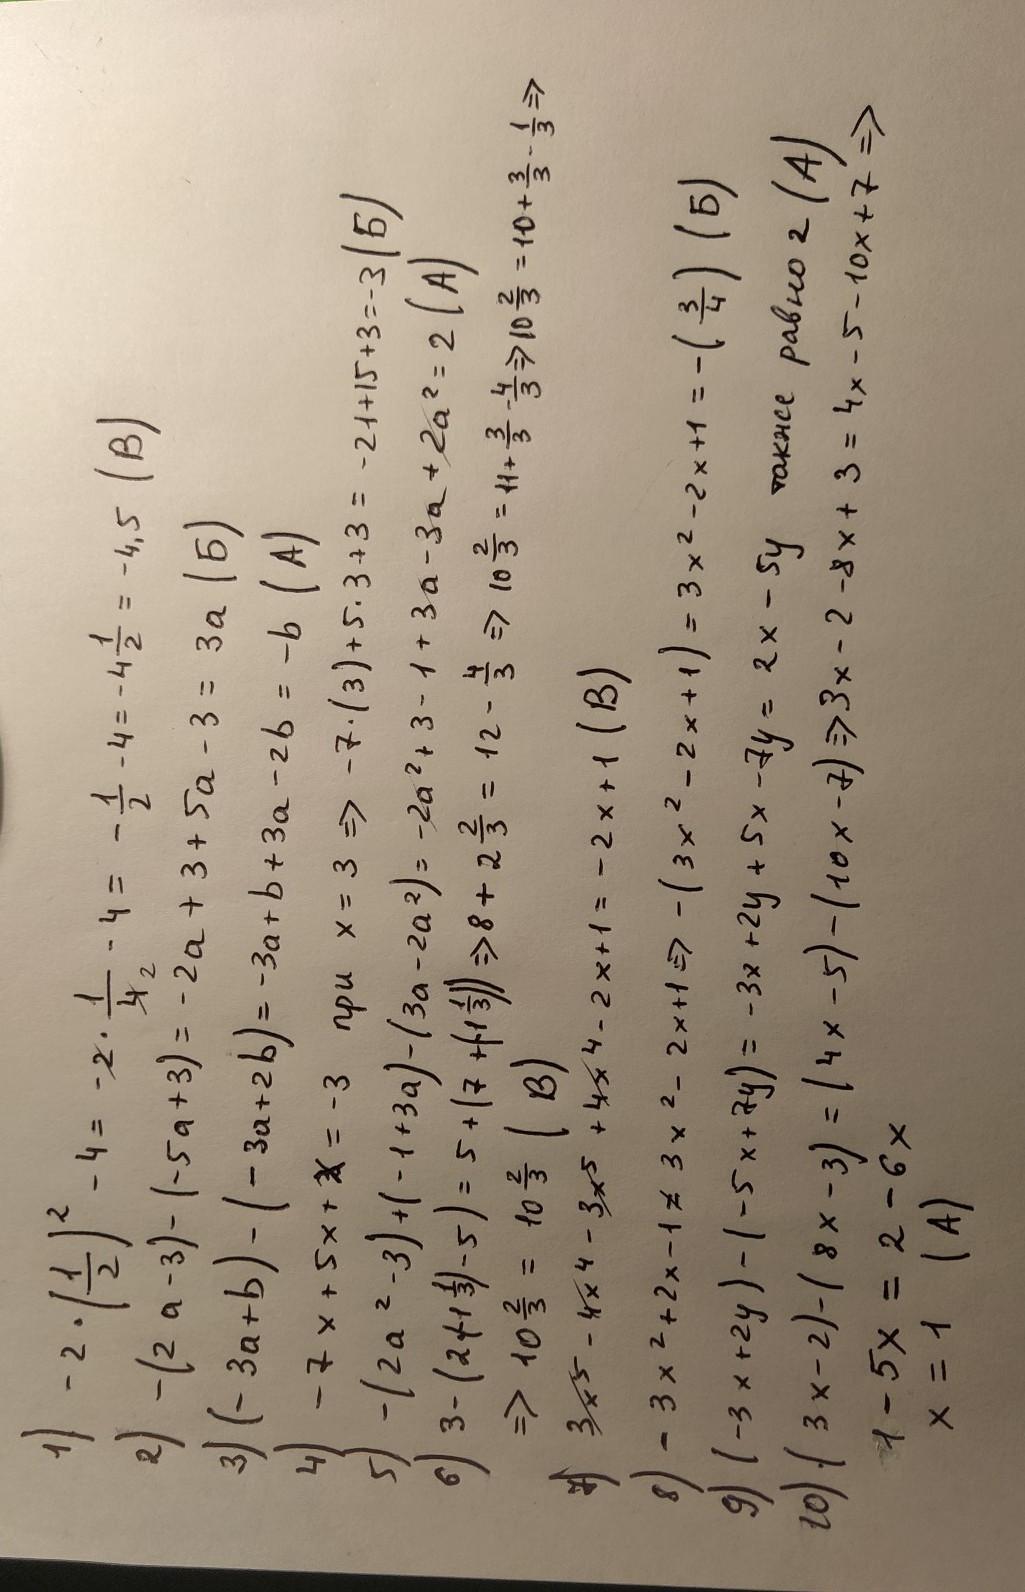 1) -2·(1/2)² -4 = -2·1/4₂ -4 = -1/2 -4 = -4 1/2 = -4,5 (В)
2) -(2a-3)-(-5a+3) = -2a+3+5a-3 = 3a (Б)
3) (-3a+b)-(-3a+2b) = -3a+b+3a-2b = -b (А)
4) -7x+5x+x = -3 при x=3 => -7·(3)+5·3+3 = -21+15+3=-3 (Б)
5) -(2a²-3)+(-1+3a)-(3a-2a²) = -2a²+3-1+3a-3a+2a²=2 (А)
6) 3-(2+(1 1/3)-5) = 5+(7+(-1 1/3)) => 8+2 2/3 = 12-4/3 => 10 2/3 = 11+3/3-4/3 => 10 2/3 = 10+3/3-1/3 =>
=> 10 2/3 = 10 2/3 (В)
7) 3x5-4x4-3x5+4x4-2x+1=-2x+1 (В)
8) -3x²+2x-1 ≠ 3x²-2x+1 => -(3x²-2x+1)=3x²-2x+1=-(3/4) (Б)
9) (-3x+2y)-(-5x+7y) = -3x+2y+5x-7y = 2x-5y также равно 2 (А)
10) (3x-2)-(8x-3) = (4x-5)-(10x-7) => 3x-2-8x+3 = 4x-5-10x+7 =>
1-5x = 2-6x
x=1 (А)